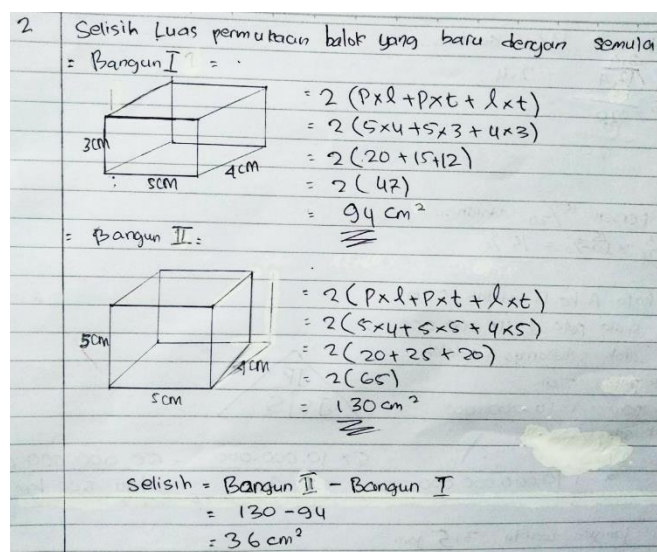 2 Selisih Luas permukaan balok yang baru dengan semula
= Bangun I = .
3cm
5cm
4cm
= 2 (Pxl + Pxt + lxt)
= 2 (5x4 + 5x3 + 4x3)
= 2 (20 + 15 + 12)
= 2 (47)
= 94 cm²
= Bangun II :
5cm
5cm
4cm
= 2 (Pxl + Pxt + lxt)
= 2 (5x4 + 5x5 + 4x5)
= 2 (20 + 25 + 20)
= 2 (65)
= 130 cm²
Selisih = Bangun II - Bangun I
= 130 - 94
= 36 cm²